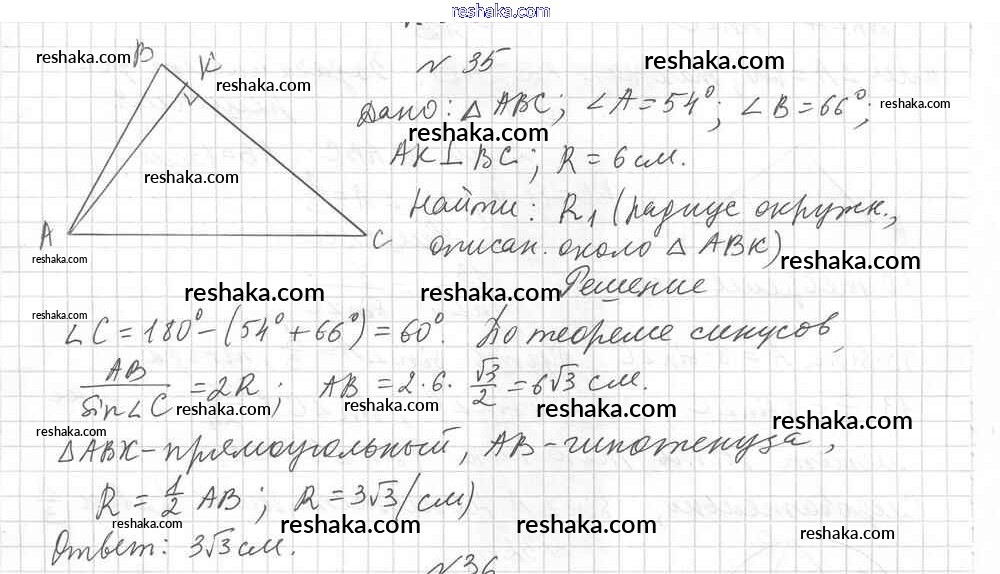 reshaka.com
reshaka.com
B
K
reshaka.com
reshaka.com
№ 35
Дано: △ ABC; ∠A = 54°; ∠B = 66°;
reshaka.com
reshaka.com
AK ⊥ BC; R = 6 см.
reshaka.com
Найти: R₁ (радиус окружк.,
A
C
reshaka.com
описан. около △ ABK)
reshaka.com
Решение
reshaka.com
reshaka.com
reshaka.com
∠C = 180° - (54° + 66°) = 60°. По теореме синусов,
AB/sin∠C = 2R; AB = 2·6·√3/2 = 6√3 см.
reshaka.com
reshaka.com
reshaka.com
reshaka.com
reshaka.com
△ABK - прямоугольный, AB - гипотенуза,
R = 1/2 AB; R = 3√3 (см)
reshaka.com
reshaka.com
reshaka.com
reshaka.com
Ответ: 3√3 см.
№36